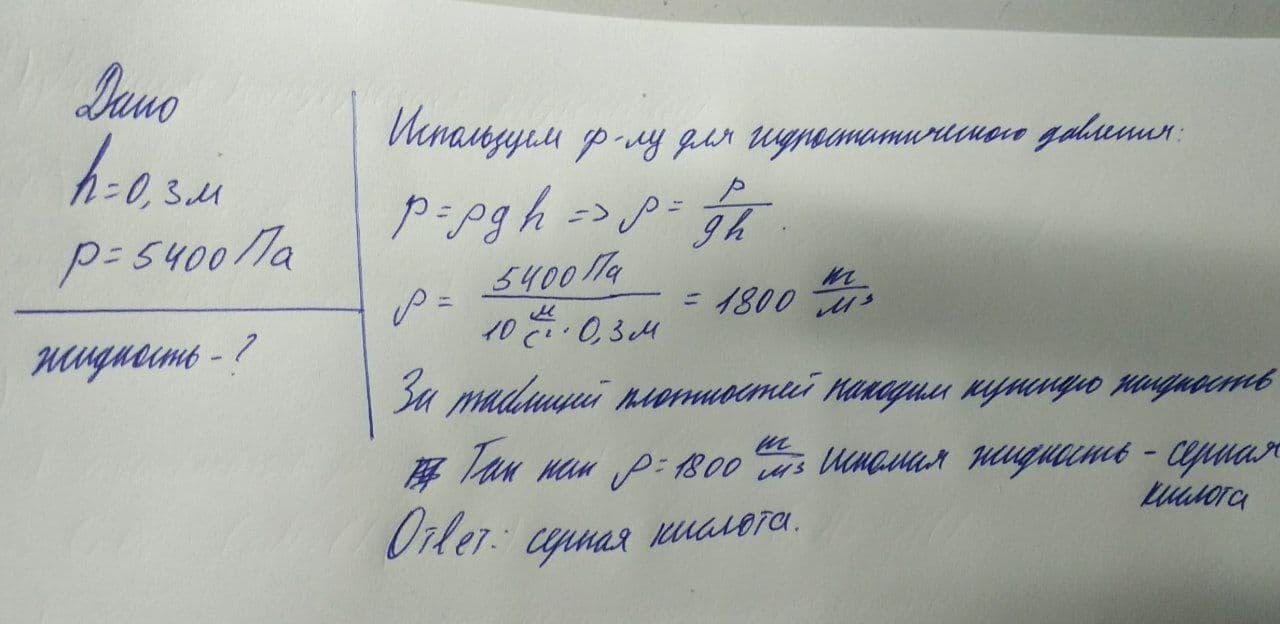 Дано
h=0,3м
p=5400Па
жидкость-?
Используем ф-лу для гидростатического давления:
p=ρgh => ρ= p/gh.
ρ= 5400Па / 10 м/с²·0,3м = 1800 т/м³
За таблицей плотностей находим нужную жидкость
Так как ρ=1800 т/м³ Искомая жидкость - серная
кислота
Ответ: серная кислота.